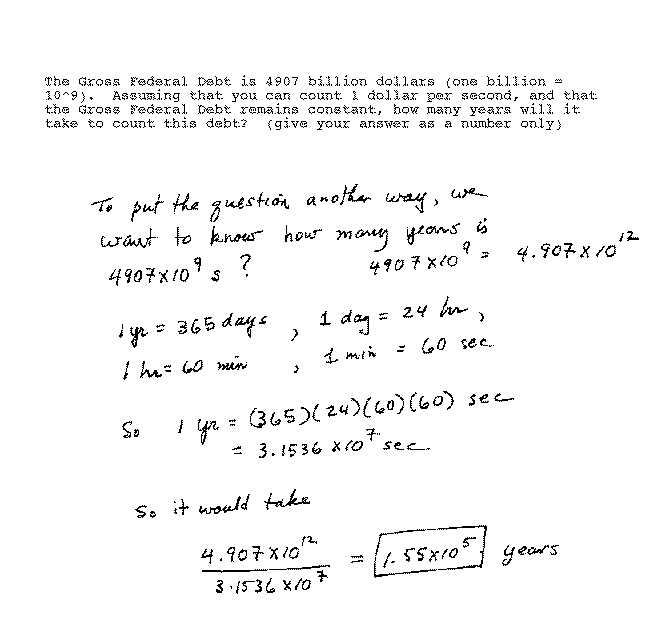 The Gross Federal Debt is 4907 billion dollars (one billion =
10^9).  Assuming that you can count 1 dollar per second, and that
the Gross Federal Debt remains constant, how many years will it
take to count this debt?  (give your answer as a number only)
To put the question another way, we
want to know how many years is
4907x10⁹ s ?   4907x10⁹ = 4.907x10¹²
1 yr = 365 days , 1 day = 24 hr ,
1 hr = 60 min , 1 min = 60 sec
So 1 yr = (365)(24)(60)(60) sec
= 3.1536 x10⁷ sec.
So it would take
4.907x10¹²
= 1.55x10⁵ years
3.1536 x10⁷